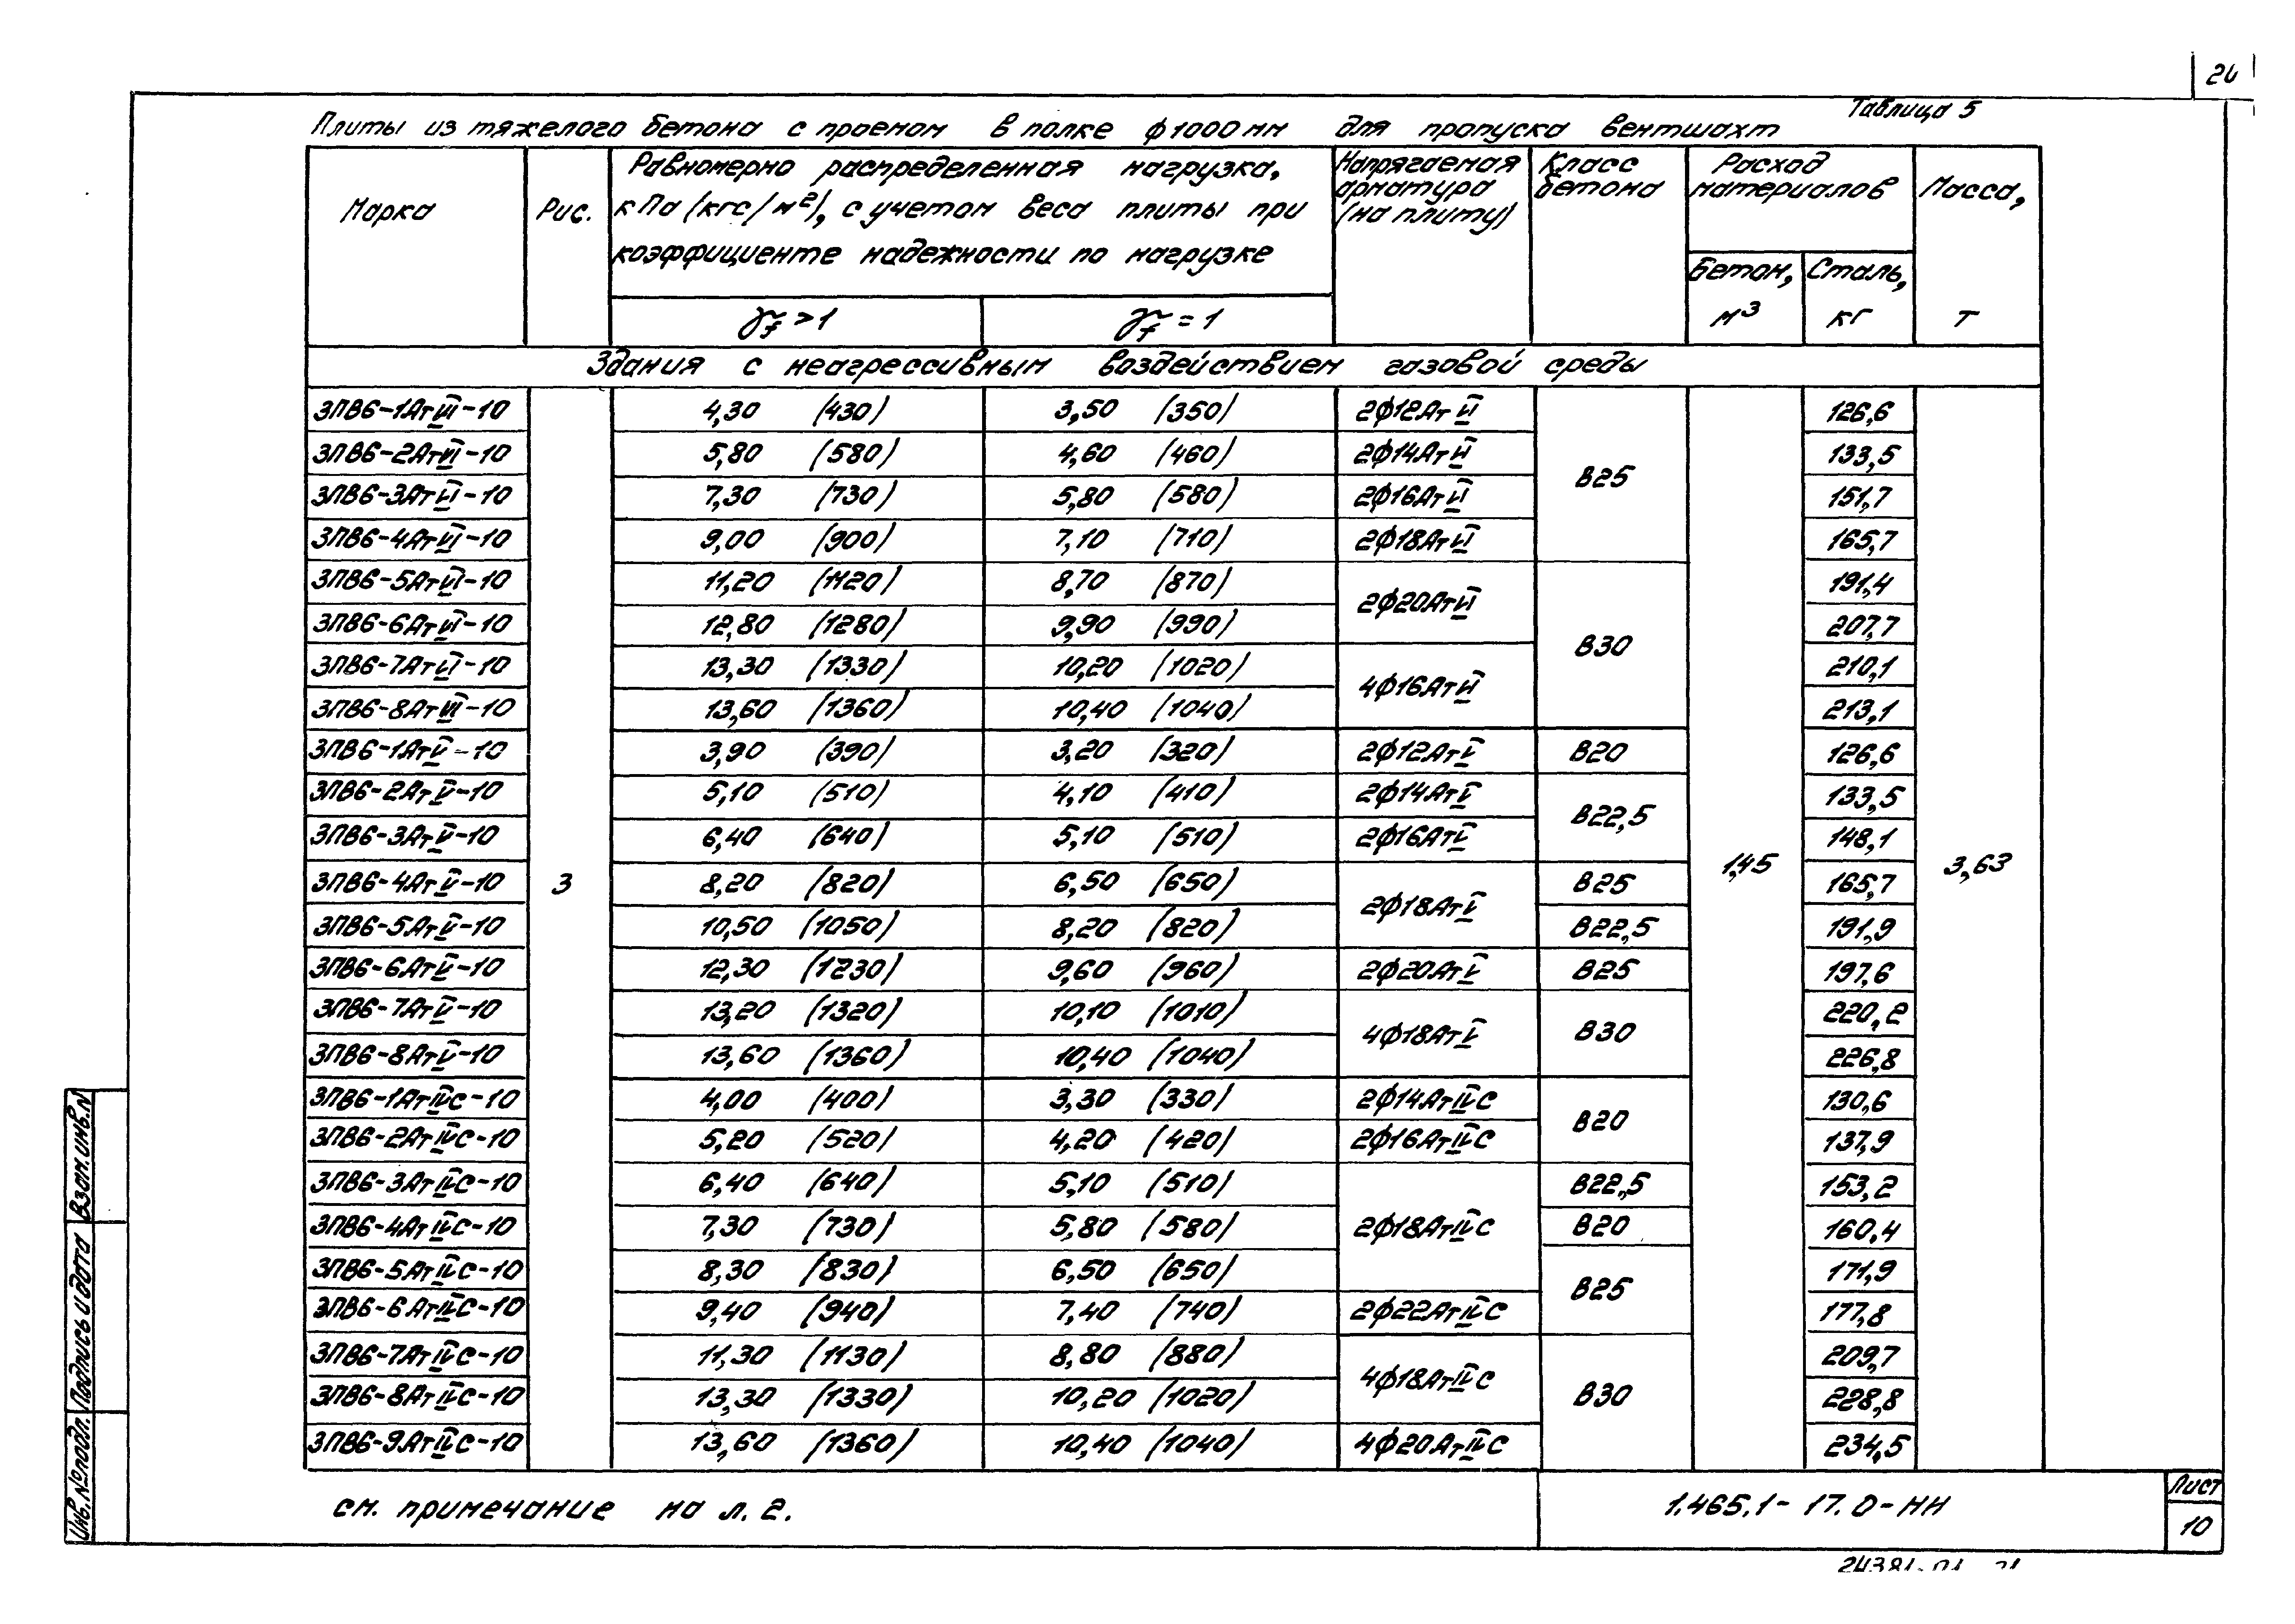 24
Таблица 5
Плиты из тяжелого бетона с проемом в полке ф1000мм для пропуска вентшахт
Марка
Рис.
Равномерно распределенная нагрузка, кПа (кгс/м²), с учетом веса плиты при коэффициенте надежности по нагрузке
Напрягаемая арматура (на плиту)
Класс бетона
Расход материалов
Масса, т
γf > 1
γf = 1
Бетон, м³
Сталь, кг
Здания с неагрессивным воздействием газовой среды
3ПВ6-1АтVI-10 4,30 (430) 3,50 (350) 2ф12АтVI 126,6
3ПВ6-2АтVI-10 5,80 (580) 4,60 (460) 2ф14АтVI 133,5
В25
3ПВ6-3АтVI-10 7,30 (730) 5,80 (580) 2ф16АтVI 151,7
3ПВ6-4АтVI-10 9,00 (900) 7,10 (710) 2ф18АтVI 165,7
3ПВ6-5АтVI-10 11,20 (1120) 8,70 (870) 191,4
2ф20АтVI
3ПВ6-6АтVI-10 12,80 (1280) 9,90 (990) 207,7
В30
3ПВ6-7АтVI-10 13,30 (1330) 10,20 (1020) 210,1
4ф16АтVI
3ПВ6-8АтVI-10 13,60 (1360) 10,40 (1040) 213,1
3ПВ6-1АтV-10 3,90 (390) 3,20 (320) 2ф12АтV В20 126,6
3ПВ6-2АтV-10 5,10 (510) 4,10 (410) 2ф14АтV 133,5
В22,5
3ПВ6-3АтV-10 6,40 (640) 5,10 (510) 2ф16АтV 148,1
1,45 3,63
3ПВ6-4АтV-10 3 8,20 (820) 6,50 (650) В25 165,7
2ф18АтV
3ПВ6-5АтV-10 10,50 (1050) 8,20 (820) В22,5 191,9
3ПВ6-6АтV-10 12,30 (1230) 9,60 (960) 2ф20АтV В25 197,6
3ПВ6-7АтV-10 13,20 (1320) 10,10 (1010) 220,2
4ф18АтV В30
3ПВ6-8АтV-10 13,60 (1360) 10,40 (1040) 226,8
3ПВ6-1АтIVС-10 4,00 (400) 3,30 (330) 2ф14АтIVС 130,6
В20
3ПВ6-2АтIVС-10 5,20 (520) 4,20 (420) 2ф16АтIVС 137,9
3ПВ6-3АтIVС-10 6,40 (640) 5,10 (510) В22,5 153,2
3ПВ6-4АтIVС-10 7,30 (730) 5,80 (580) 2ф18АтIVС В20 160,4
3ПВ6-5АтIVС-10 8,30 (830) 6,50 (650) 171,9
В25
3ПВ6-6АтIVС-10 9,40 (940) 7,40 (740) 2ф22АтIVС 177,8
3ПВ6-7АтIVС-10 11,30 (1130) 8,80 (880) 209,7
4ф18АтIVС
3ПВ6-8АтIVС-10 13,30 (1330) 10,20 (1020) В30 228,8
3ПВ6-9АтIVС-10 13,60 (1360) 10,40 (1040) 4ф20АтIVС 234,5
см. примечание на л. 2.
1.465.1-17.0-НИ
Лист
10
Инв.№подл.
Подпись и дата
Взам.инв.N
24381-01